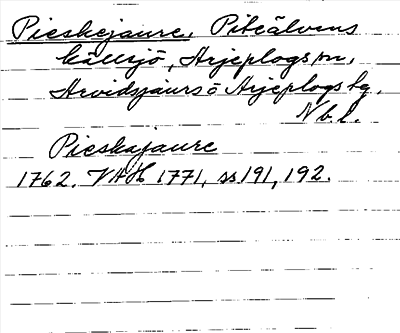 Pieskejaure, Piteälvens
källsjö, Arjeplogs sn,
Arvidsjaurs o Arjeplogs tg.
Nb. l.
Pieskajaure
1762. VAH 1771, ss 191, 192.